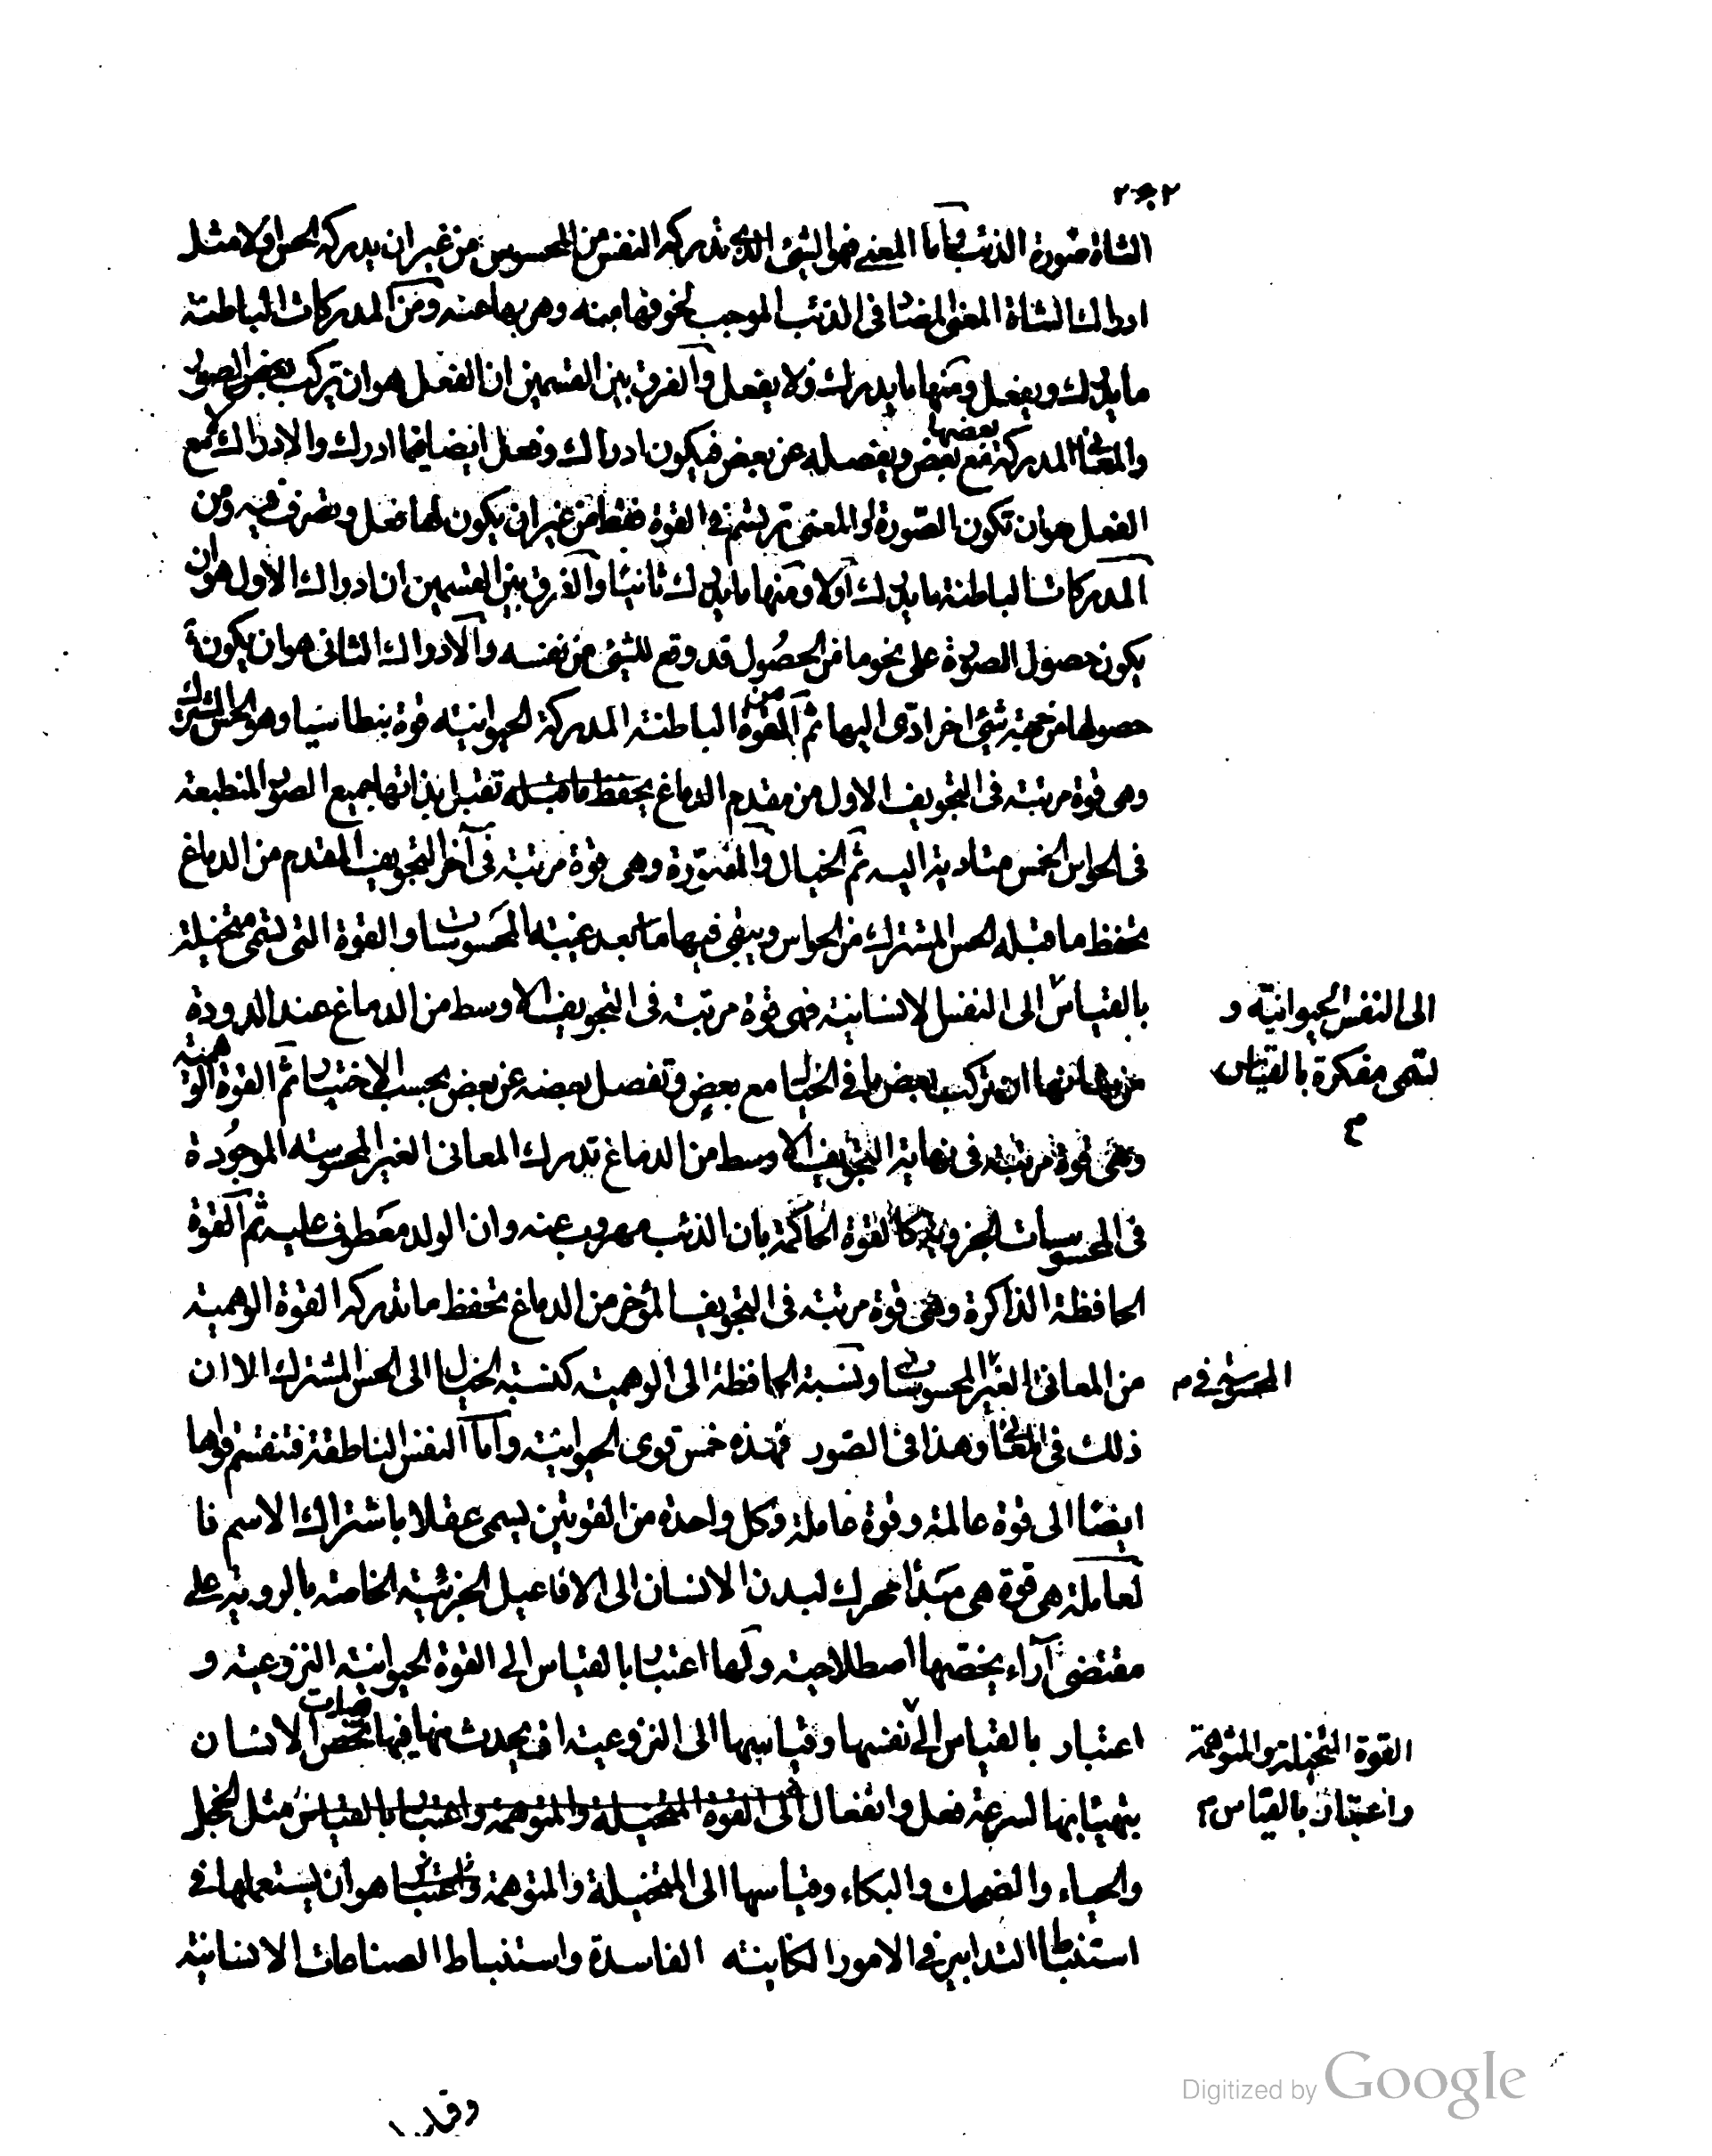 ٢٥٢
الشاة صورة الذئب واما المعنى فهو الشئ الذي تدركه النفس من المحسوس من غير ان يدركه الحس اولا مثل
ادراك الشاة المعنى المضاد في الذئب الموجب لخوفها منه وهربها عنه ومن المدركات الباطنة
ما يدرك ويفعل ومنها ما يدرك ولا يفعل والفرق بين القسمين ان الفعل هو ان تركب بعض الصور
والمعاني المدركة بعضها مع بعض ويفصله عن بعض فيكون ادراك وفعل ايضا فيما ادرك والادراك لا مع
الفعل هو ان تكون الصورة او المعنى ترتسم في القوة فقط من غير ان يكون لها فعل وتصرف فيه ومن
المدركات الباطنة ما يدرك اولا ومنها ما يدرك ثانيا والفرق بين القسمين ان ادراك الاول هو ان
يكون حصول الصورة على نحو ما من الحصول قد وقع للشئ من نفسه والادراك الثاني هو ان يكون
حصولها من جهة شئ اخر ادى اليها ثم من القوة الباطنة المدركة الحيوانية قوة بنطاسيا وهو الحس المشترك
وهي قوة مرتبة في التجويف الاول من مقدم الدماغ يحفظ ما قبله تقبل بذاتها جميع الصور المنطبعة
في الحواس الخمس متادية اليه ثم الخيال والمصورة وهي قوة مرتبة في آخر التجويف المقدم من الدماغ
تحفظ ما قبله الحس المشترك من الحواس ويبقى فيها ما بعد غيبة المحسوسات والقوة التي تسمى متخيلة
بالقياس الى النفس الانسانية فهي قوة مرتبة في التجويف الاوسط من الدماغ عند الدودة
الى النفس الحيوانية و
تسمى مفكرة بالقياس
م
من شانها ان تركب بعض ما في الخيال مع بعض وتفصل بعضه عن بعض بحسب الاختيار ثم القوة الوهمية
وهي قوة مرتبة في نهاية التجويف الاوسط من الدماغ تدرك المعاني الغير المحسوسة الموجودة
في المحسوسات الجزوية كالقوة الحاكمة بان الذئب مهروب عنه وان الولد معطوف عليه ثم القوة
الحافظة الذاكرة وهي قوة مرتبة في التجويف المؤخر من الدماغ تحفظ ما تدركه القوة الوهمية
من المعاني الغير المحسوسات ونسبة الحافظة الى الوهمية كنسبة الخيال الى الحس المشترك الا ان
المحسوسة في م
ذلك في المعاني وهذا في الصور فهذه خمس قوى الحيوانية واما النفس الناطقة فتنقسم قواها
ايضا الى قوة عالمة وقوة عاملة وكل واحدة من القوتين يسمى عقلا باشتراك الاسم فا
لعاملة هي قوة هي مبدأ محرك لبدن الانسان الى الافاعيل الجزئية الخاصة بالروية على
مقتضى آراء يخصها اصطلاحية ولها اعتبار بالقياس الى القوة الحيوانية النزوعية و
اعتبار بالقياس الى نفسها وقياسها الى النزوعية ان يحدث منها فيها هيئات تخص الانسان
القوة المتخيلة والمتوهمة
واعتبار بالقياس م
يتهيئا بها لسرعة فعل وانفعال الى القوة المتخيلة والمتوهمة واعتبار بالقياس مثل الخجل
والحياء والضحك والبكاء وقياسها الى المتخيلة والمتوهمة هو ان يستعملها في
استنباط التدابير في الامور الكاينة الفاسدة واستنباط الصناعات الانسانية
Digitized by Google